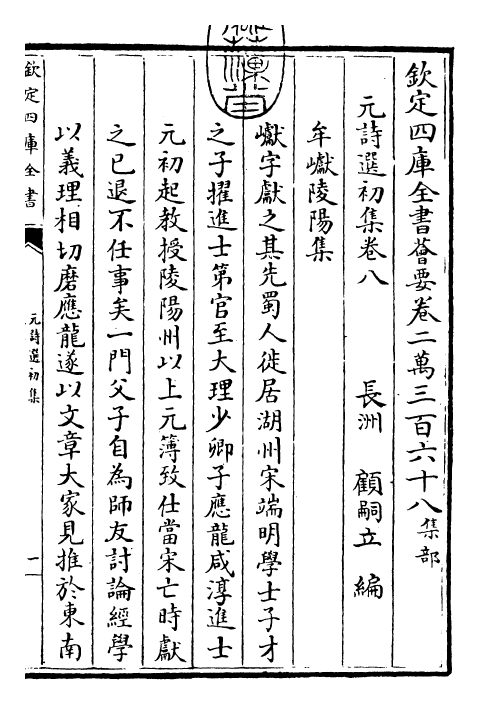 欽定四庫全書薈要卷二萬三百六十八集部
元詩選初集卷八
長洲 顧嗣立 編
牟巘陵陽集
巘字獻之其先蜀人徙居湖州宋端明學士子才
之子擢進士第官至大理少卿子應龍咸淳進士
元初起教授陵陽州以上元簿致仕當宋亡時獻
之已退不任事矣一門父子自為師友討論經學
以義理相切磨應龍遂以文章大家見推於東南
欽定四庫全書
元詩選初集
一